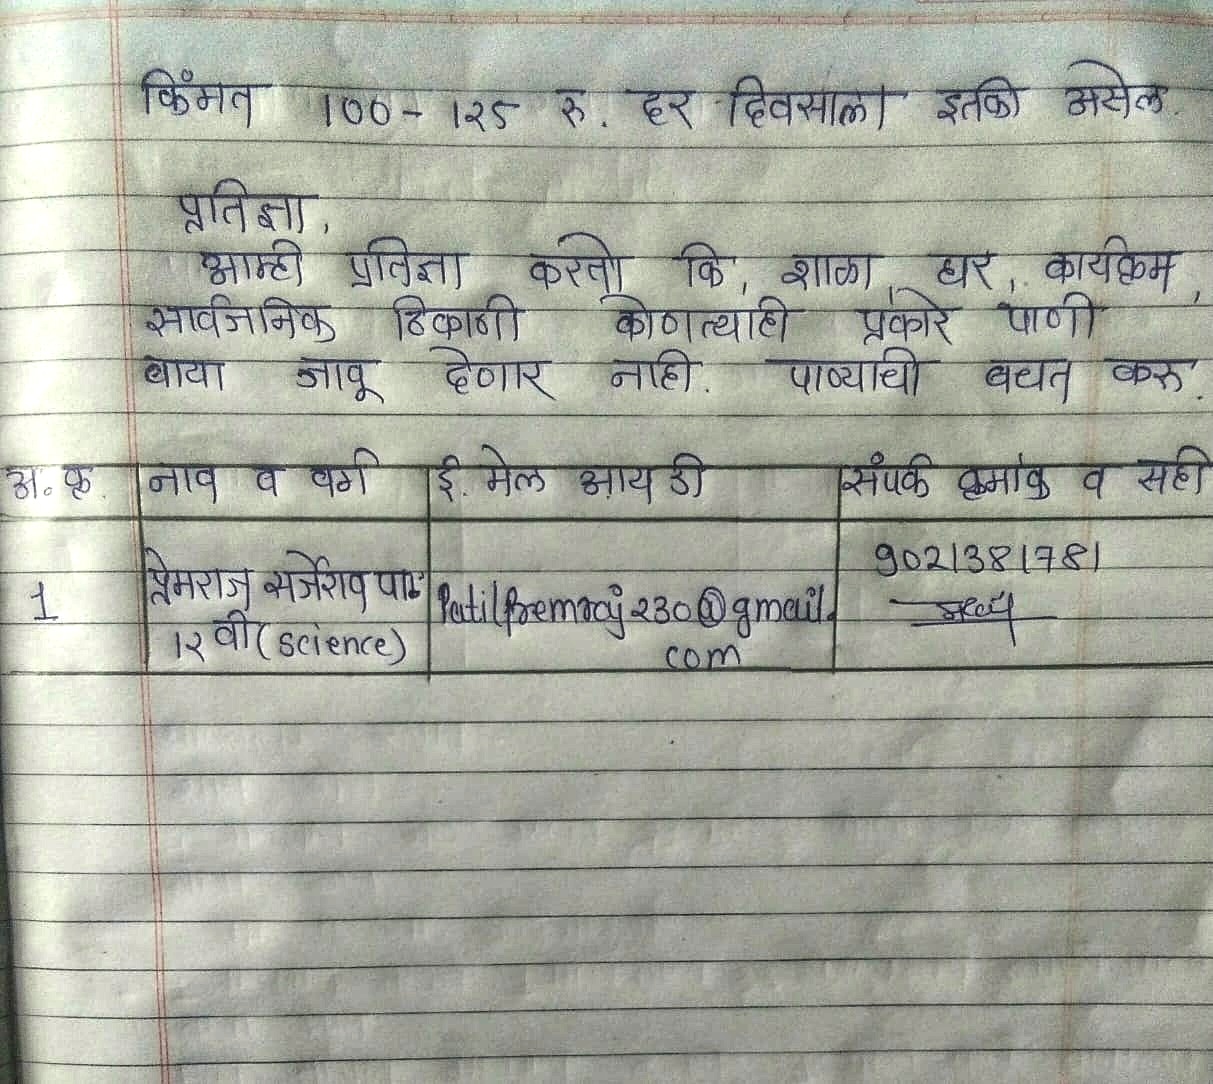 किंमत 100 - १२५ रु. दर दिवसाला इतकी असेल.
प्रतिज्ञा,
आम्ही प्रतिज्ञा करतो कि, शाळा, घर, कार्यक्रम,
सार्वजनिक ठिकाणी कोणत्याही प्रकारे पाणी
वाया जावू देणार नाही. पाण्याची बचत करू.
अ. क्र. नाव व वर्ग ई. मेल आय डी संपर्क क्रमांक व सही
1 प्रेमराज सर्जेराव पा. patilpremraj230@gmail. 9021381781
१२ वी (science) com